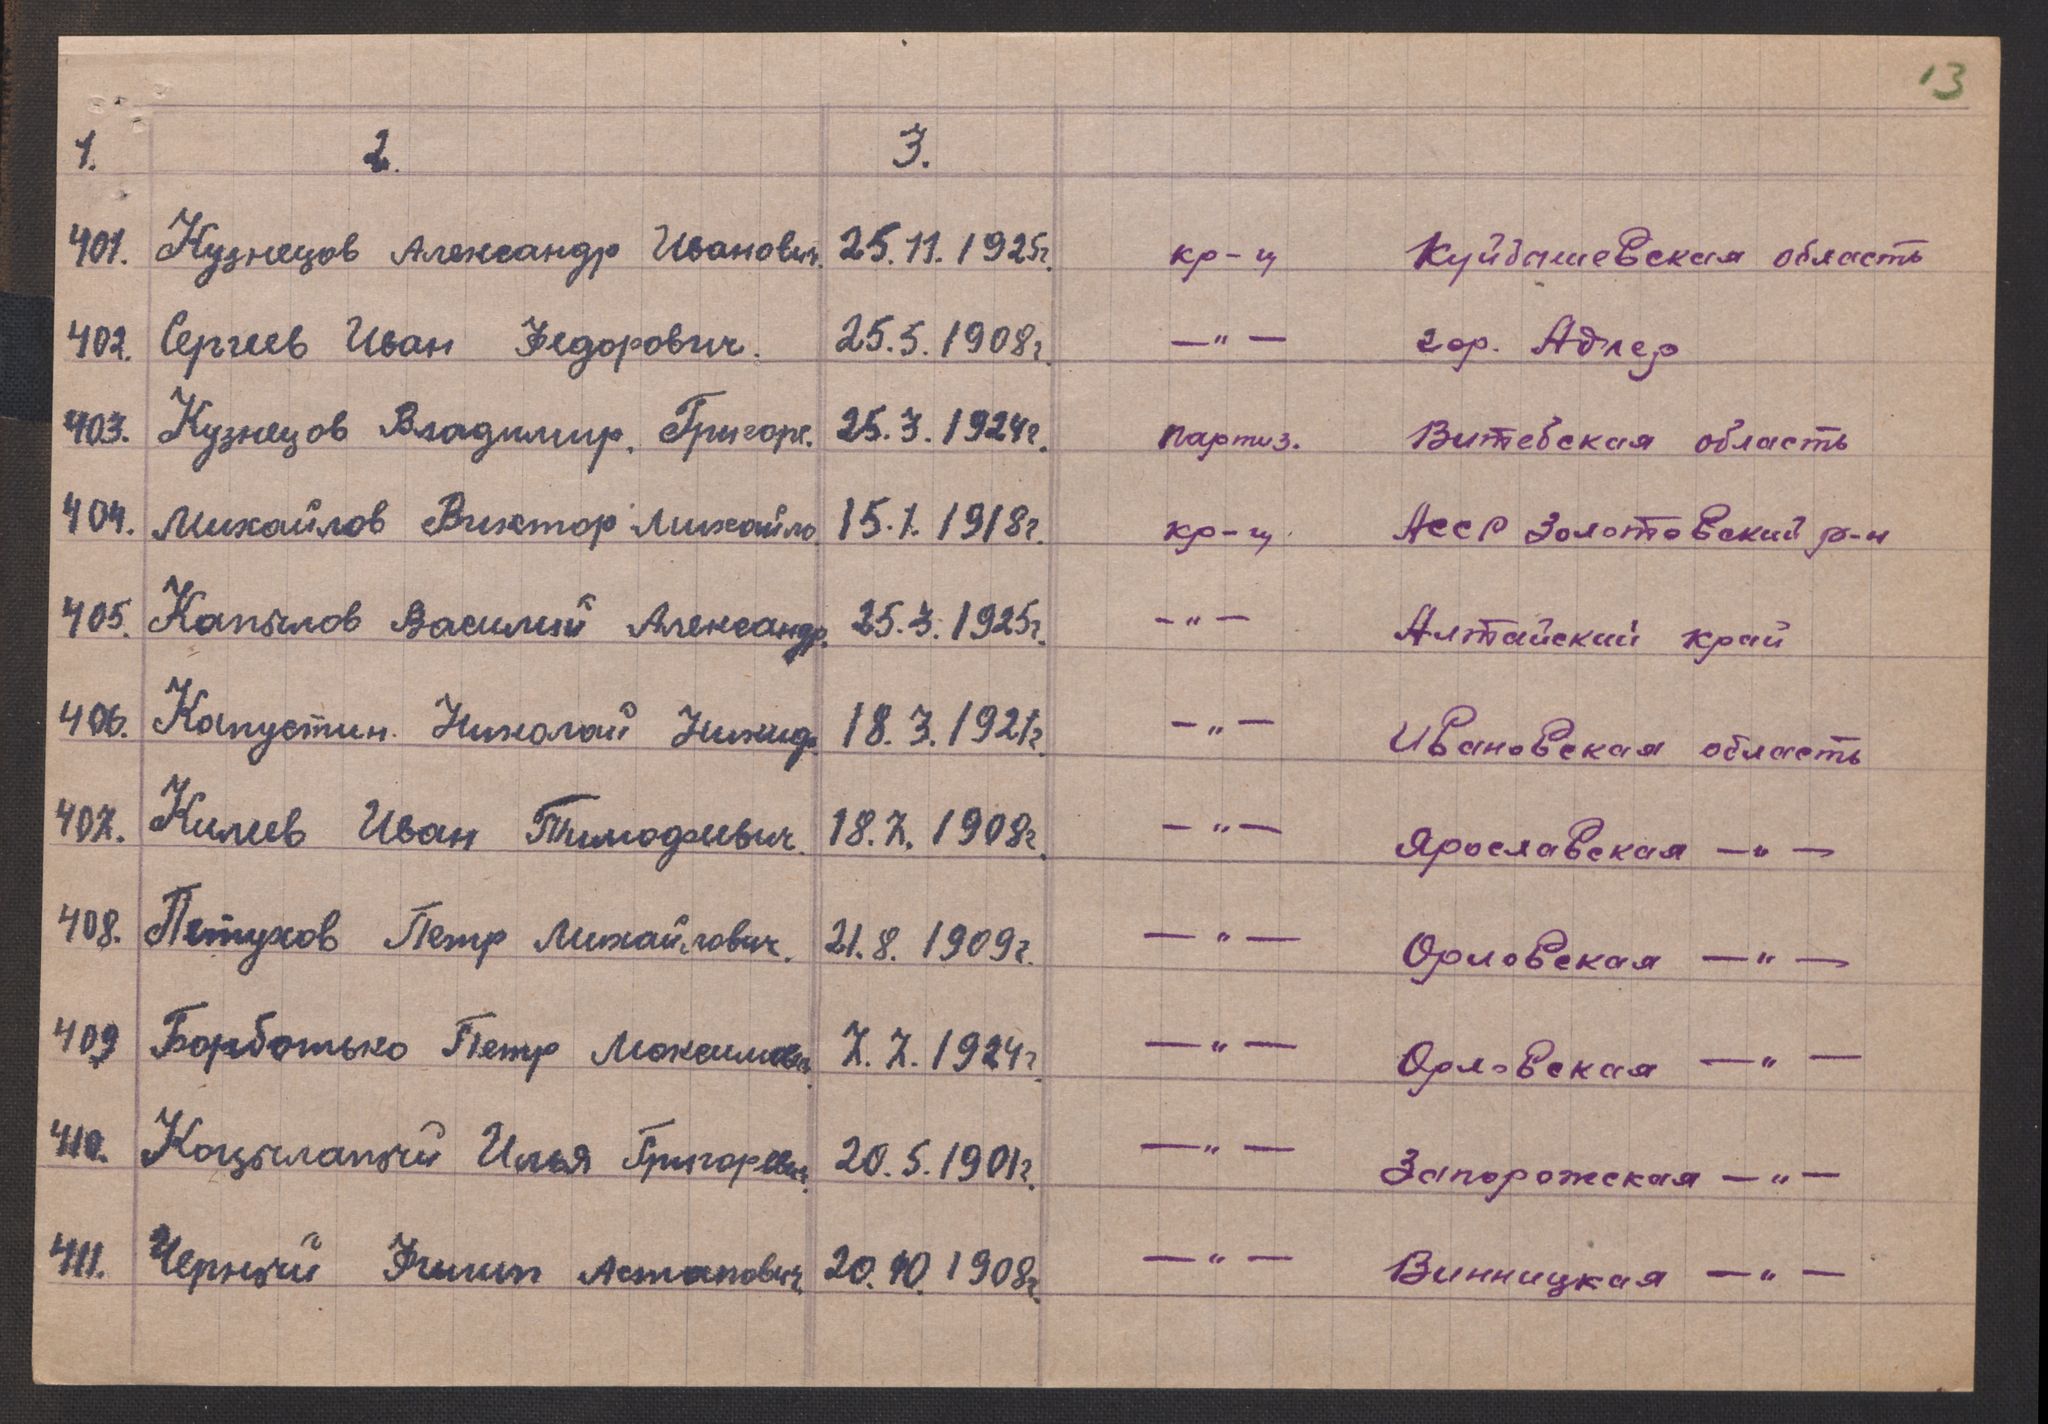 13
1. 2. 3.
401. Кузнецов Александр Иванович. 25.11.1925г. кр-ц Куйбышевская область
402. Сергеев Иван Федорович. 25.5.1908г. —"— гор. Адлер
403. Кузнецов Владимир. Григорг. 25.3.1924г. партиз. Витебская область
404. Михайлов Виктор Михайло. 15.1.1918г. кр-ц АССР Золотовский р-н
405. Капылов Василий Александр. 25.3.1925г. -"- Алтайский край
406. Капустин. Николай Никид. 18.3.1921г. -"- Ивановская область
407. Килеев Иван Тимофеевич. 18.7.1908г. -"- Ярославская —"—
408. Петухов Петр Михайлович. 21.8.1909г. —"— Орловская —"—
409 Борботько Петр Максимович. 7.7.1924г. —"— Орловская —"—
410. Коцылапый Илья Григоревич. 20.5.1901г. —"— Запорожская —"—
411. Черный Филип Астапович. 20.10.1908г. —"— Винницкая —"—